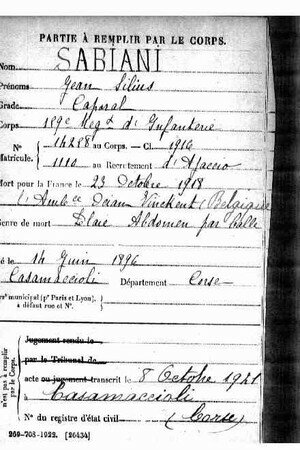 PARTIE À REMPLIR PAR LE CORPS.
Nom SABIANI
Prénoms Jean Silius
Grade Caporal
Corps 159e Regt d'Infanterie
N° 14288 au Corps. — Cl. 1916
Matricule. 1110 au Recrutement d'Ajaccio
Mort pour la France le 23 Octobre 1918
à l'Ambce Belgique
Genre de mort Plaie Abdomen par balle
Né le 14 Juin 1896
Casamaccioli Département Corse
Arr municipal (pr Paris et Lyon),
à défaut rue et N°.
n'est pas à remplir
par le Corps.
Jugement rendu le
par le Tribunal de
acte ou jugement transcrit le 8 Octobre 1921
à Casamaccioli
N° du registre d'état civil (Corse)
269-708-1922. [26434]